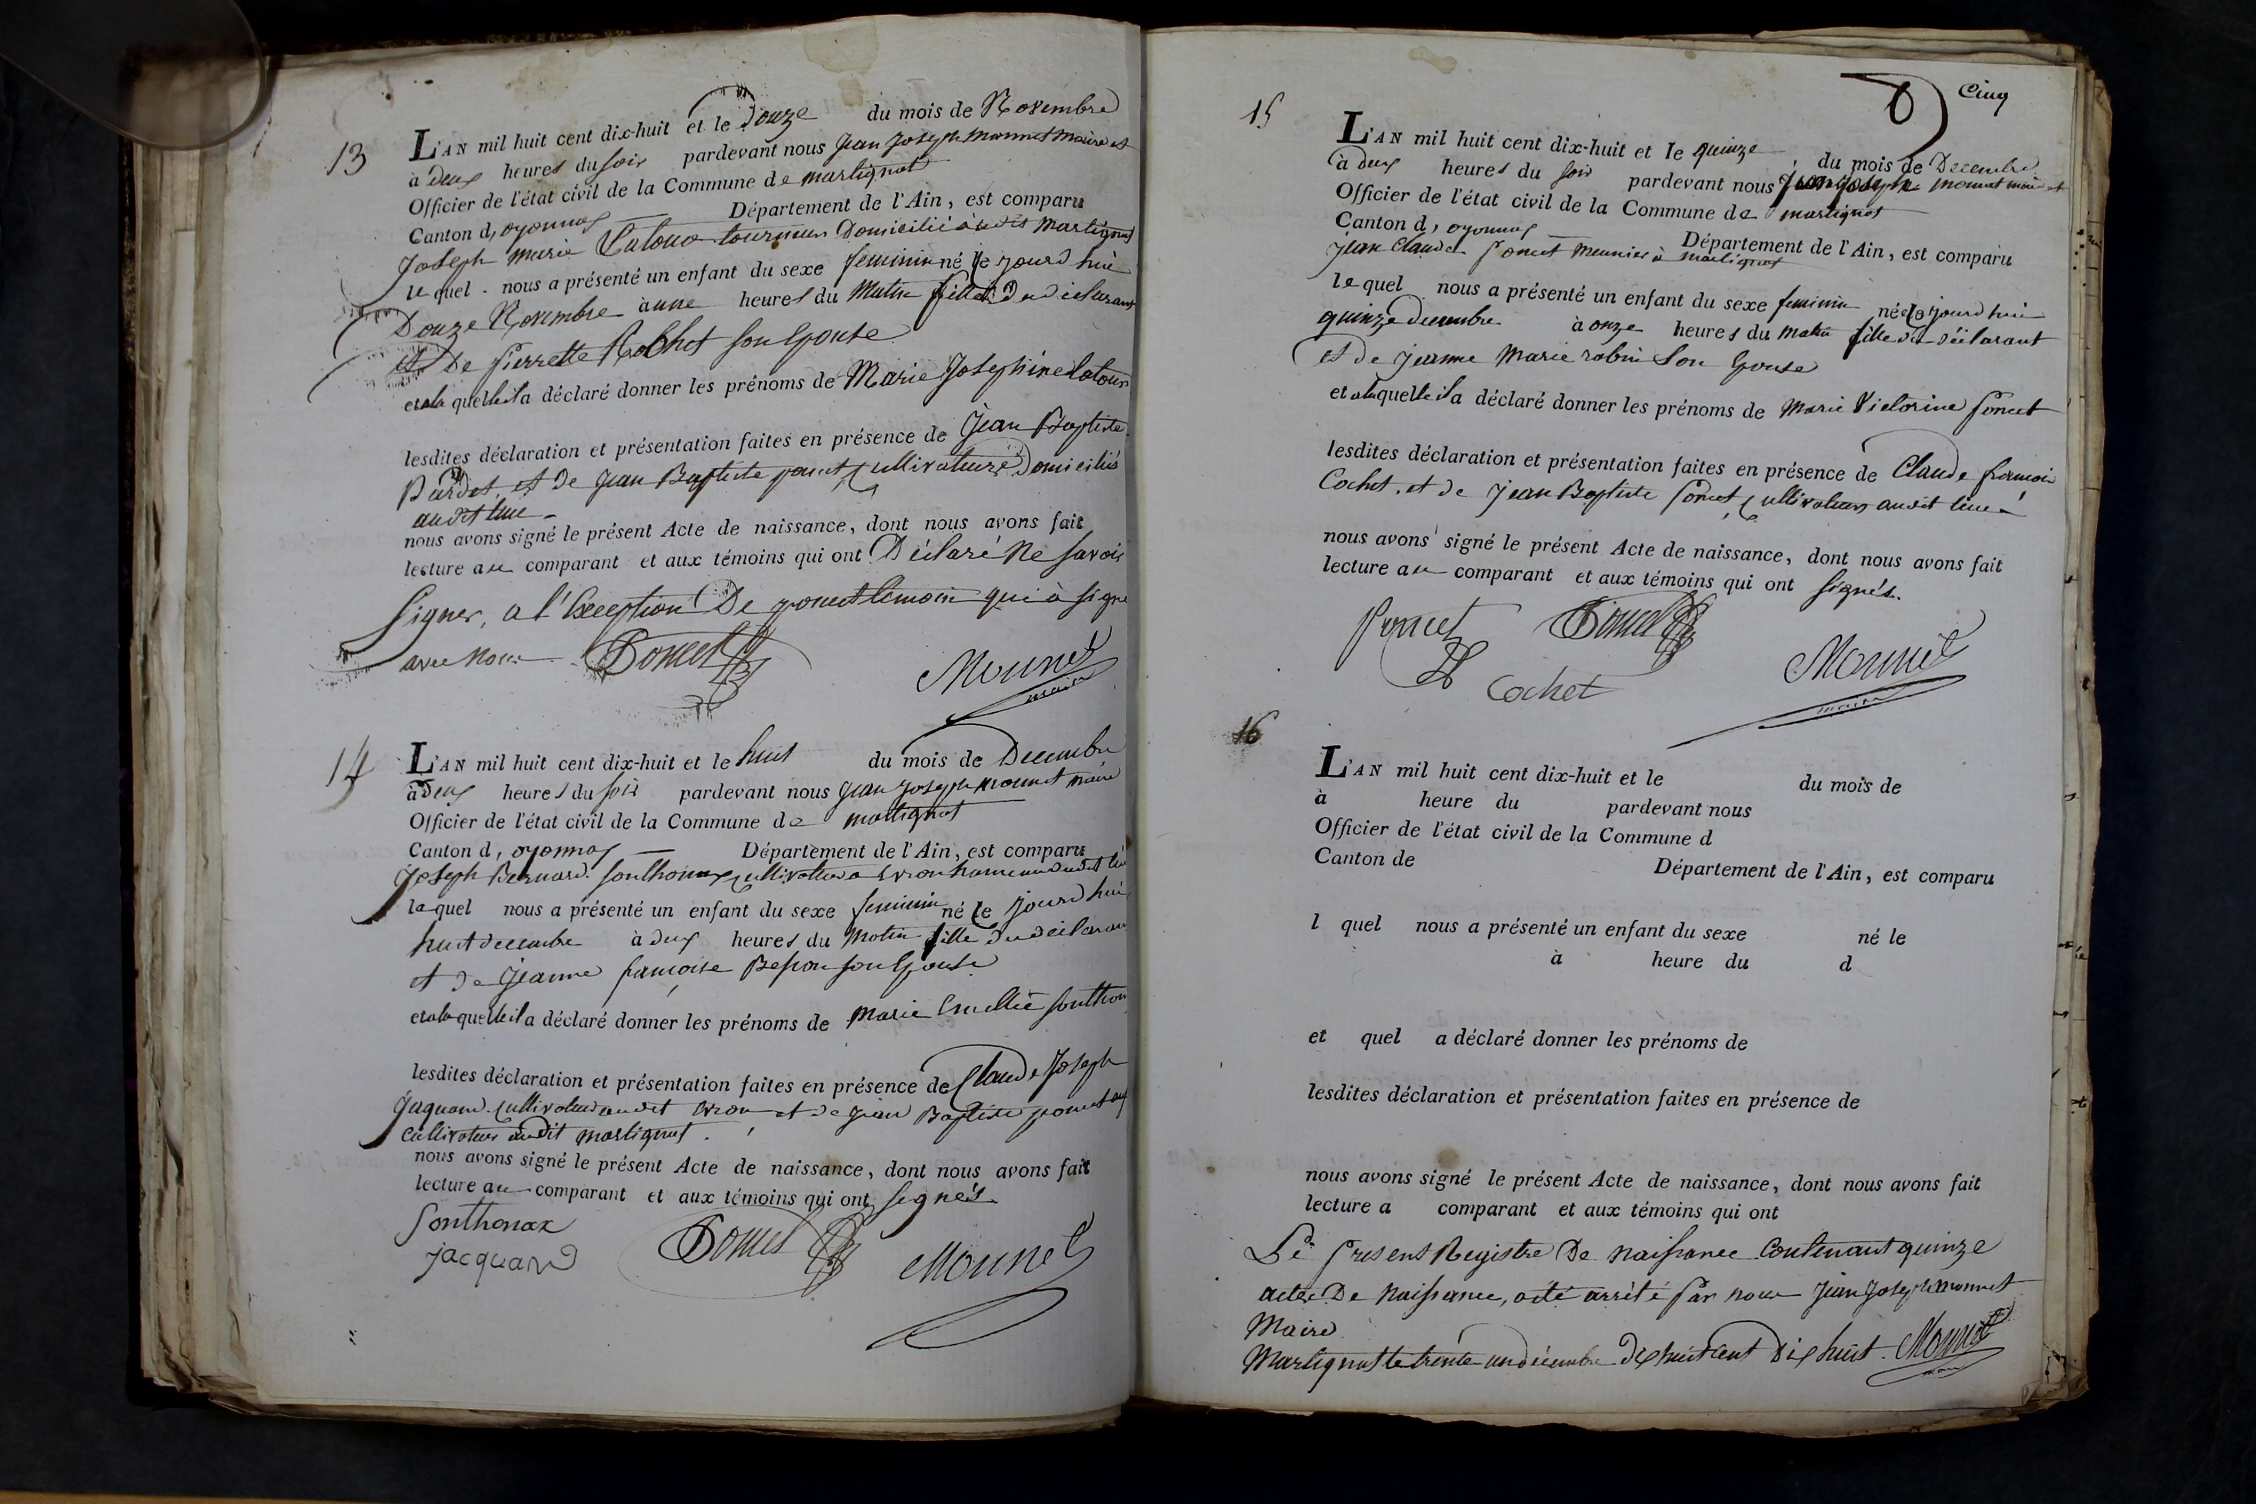 13
L'AN mil huit cent dix-huit et le Douze du mois de Novembre
à Deux heures du soir pardevant nous Jean Joseph monnet maire et
Officier de l'état civil de la Commune de martignat
Canton d, oyonnax Département de l'Ain, est comparu
Joseph marie Latour tourneur Domicilié audit martignat
le quel nous a présenté un enfant du sexe feminin né ce jourd hui
Douze Novembre à une heures du Matin fille du déclarant
et De pierrette Rochet son Epouse
et a la quelle il a déclaré donner les prénoms de Marie Josephine latour
lesdites déclaration et présentation faites en présence de Jean Baptiste
et de Jean Baptiste poncet Cultivateurs Domiciliés
audit lieu
nous avons signé le présent Acte de naissance, dont nous avons fait
lecture au comparant et aux témoins qui ont Déclaré Ne savoir
signer, a l'Exception De poncet temoin qui à signé
avec nous Poncet Monnet
maire
14
L'AN mil huit cent dix-huit et le huit du mois de Decembre
à Deux heures du soir pardevant nous jean joseph monnet maire
Officier de l'état civil de la Commune de martignat
Canton d, oyonnax Département de l'Ain, est comparu
Joseph Bernard sonthonax cultivateur a Evron hameau dudit lieu
le quel nous a présenté un enfant du sexe feminin né ce jourd hui
huit decembre à deux heures du Matin fille du déclarant
et de jeanne françoise Besson son Epouse
et a la quelle il a déclaré donner les prénoms de marie Emellie sonthon
lesdites déclaration et présentation faites en présence de Claude Joseph
jaquand cultivateur audit Evron et de jean Baptiste poncet
cultivateur audit martignat.
nous avons signé le présent Acte de naissance, dont nous avons fait
lecture au comparant et aux témoins qui ont signés
Sonthonax
jacquand Poncet Monnet
Cinq
15
L'AN mil huit cent dix-huit et le quinze du mois de Decembre
à deux heures du soir pardevant nous jean joseph monnet maire et
Officier de l'état civil de la Commune de martignat
Canton d, oyonnax Département de l'Ain, est comparu
jean Claude Poncet meunier à martignat
le quel nous a présenté un enfant du sexe feminin né ce jourd hui
quinze decembre à onze heures du matin fille du déclarant
et de jeanne Marie robin son Epouse
et a la quelle il a déclaré donner les prénoms de marie Victorine Poncet
lesdites déclaration et présentation faites en présence de Claude francois
Cochet, et de jean Baptiste Poncet, Cultivateurs audit lieu
nous avons signé le présent Acte de naissance, dont nous avons fait
lecture au comparant et aux témoins qui ont signés.
Poncet Poncet
Cochet Monnet
maire
16
L'AN mil huit cent dix-huit et le du mois de
à heure du pardevant nous
Officier de l'état civil de la Commune d
Canton de Département de l'Ain, est comparu
l quel nous a présenté un enfant du sexe né le
à heure du d
et quel a déclaré donner les prénoms de
lesdites déclaration et présentation faites en présence de
nous avons signé le présent Acte de naissance, dont nous avons fait
lecture a comparant et aux témoins qui ont
Le Present Registre De naissance Contenant quinze
actes De Naissance, a été arrété Par nous Jean Joseph Monnet
Maire
Martignat le trente un décembre Dix huit cent Dix huit. Monnet